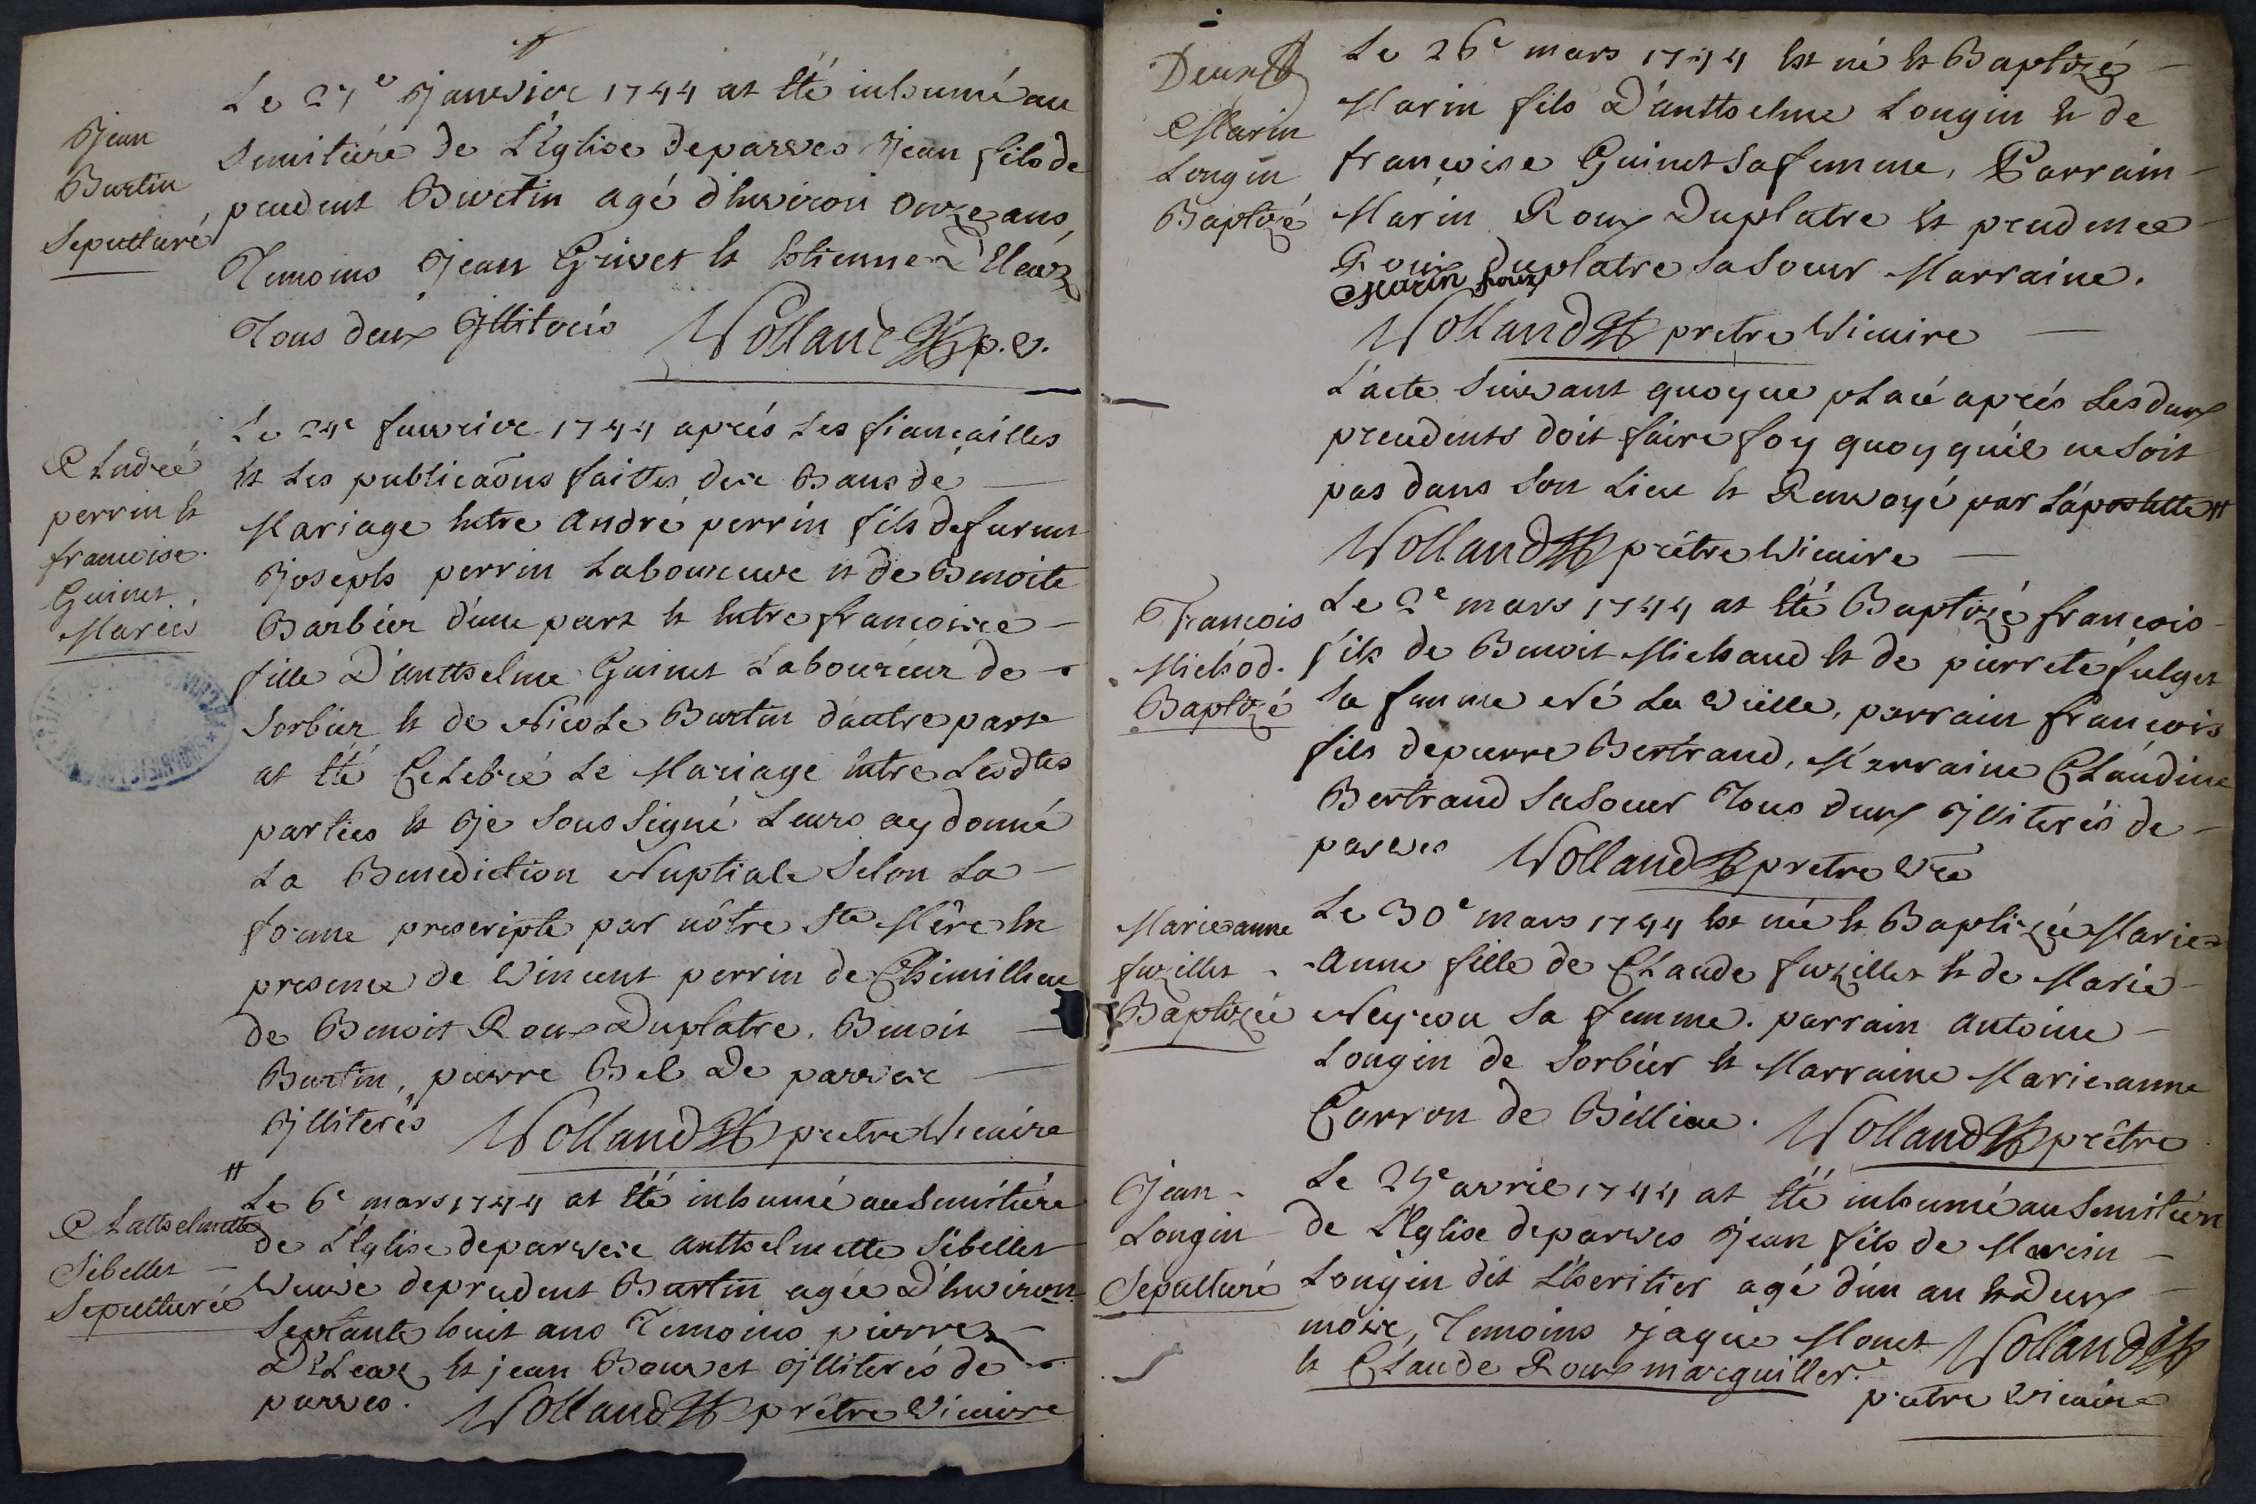 Jean
Burtin
Sepulturé
Le 27e janvier 1744 at êté inhumé au
Semitiére de L'Eglise deparves jean fils de
prudent Burtin agé d'hnviron onze ans,
Temoins jean Grivet et Estienne D'Eléaz
Tous deux jllitorés Volland p.v.
André
perrin et
francoise
Guinet
Mariés
Le 24e fawrier 1744 aprés Les fiançailles
et Les publicaõns faittes des Bans de
Mariage entre andré perrin fils de furent
joseph perrin Laboureur et de Benoite
Barbier d'une part et entre francoise
fille D'anthelme Guinet Laboureur de
Sorbier et de Nicole Burtin d'autre part
at êté Celebré Le Mariage entre Lesdtes
parties et je sous signé Leurs ay donné
La Benediction Nuptiale Selon La
forme prescripte par nôtre Ste Mêre en
presence de Vincent perrin de Chimillieu
de Benoit Roux Duplatre, Benoit
Burtin, pierre Bel De parves
jlliterés Volland pretre Vicaire
Anthelmette
Sibellet
Sepulturée
Le 6e mars 1744 at êté inhumé au Semitiére
de L'Eglise de parves anthelmette Sibellet
Veuve de prudent Burtin agée D'hnviron
Septante huit ans Temoins pierre
D'Eleaz et jean Bouvet jlliterés de
parves. Volland prêtre Vicaire
Deux
Marin
Longin
Baptizé
Le 26e mars 1744 est né et Baptizé
Marin fils D'anthelme Longin et de
françoise Guinet sa femme, Parrain
Marin Roux Duplatre et prudence
Roux Duplatre sa soeur Marraine.
Marin Roux
Volland prêtre Vicaire
L'acte Suivant quoyque placé aprés Les deux
precedents doit faire foy quoy qu'il ne soit
pas dans son Lieu et Renvoyé par L'apostille
Volland prêtre Vicaire
François
Michod
Baptizé
Le 2e mars 1744 at êté Baptizé françois
fils de Benoit Michaud et de pierrete fulget
sa femme Né La Veille, parrain françois
fils de pierre Bertrand, Marraine Claudine
Bertrand sa soeur Tous deux jlliterés de
parves Volland pretre Vre
Marie anne
fuzillet
Baptizée
Le 30e mars 1744 est né et Baptizée Marie
Anne fille de Claude fuzillet et de Marie
Neyrou sa femme. parrain antoine
Longin de Sorbier et Marraine Marie anne
Carron de Billieu. Volland prêtre
Jean
Longin
Sepulturé
Le 27e avril 1744 at êté inhumé au Semitiére
de L'Eglise de parves jean fils de Marin
Longin dit L'heritier agé d'un an et Deux
mois, Temoins jaque Monet Volland
et Claude Roux marguiller.
prêtre Vicaire